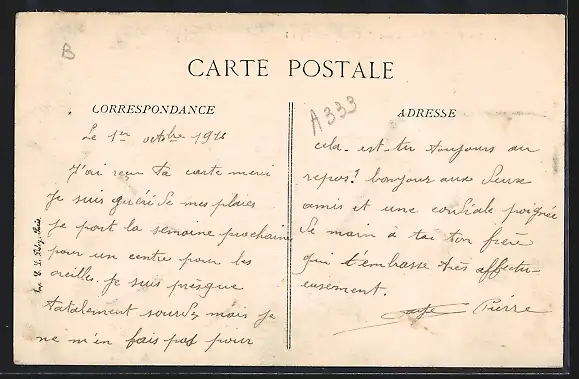 B
CARTE POSTALE
CORRESPONDANCE
Le 1er octobre 1916
J'ai reçu ta carte merci
Je suis guéri de mes plaies
je part la semaine prochaine
pour un centre pour les
oreilles. Je suis presque
totalement sourdez mais je
ne m'en fais pas pour
A333
ADRESSE
cela. est tu toujours au
repos? bonjour aux deux
amis et une cordiale poignée
de main à toi ton frère
qui t'embrasse très affectu-
eusement.
Pierre